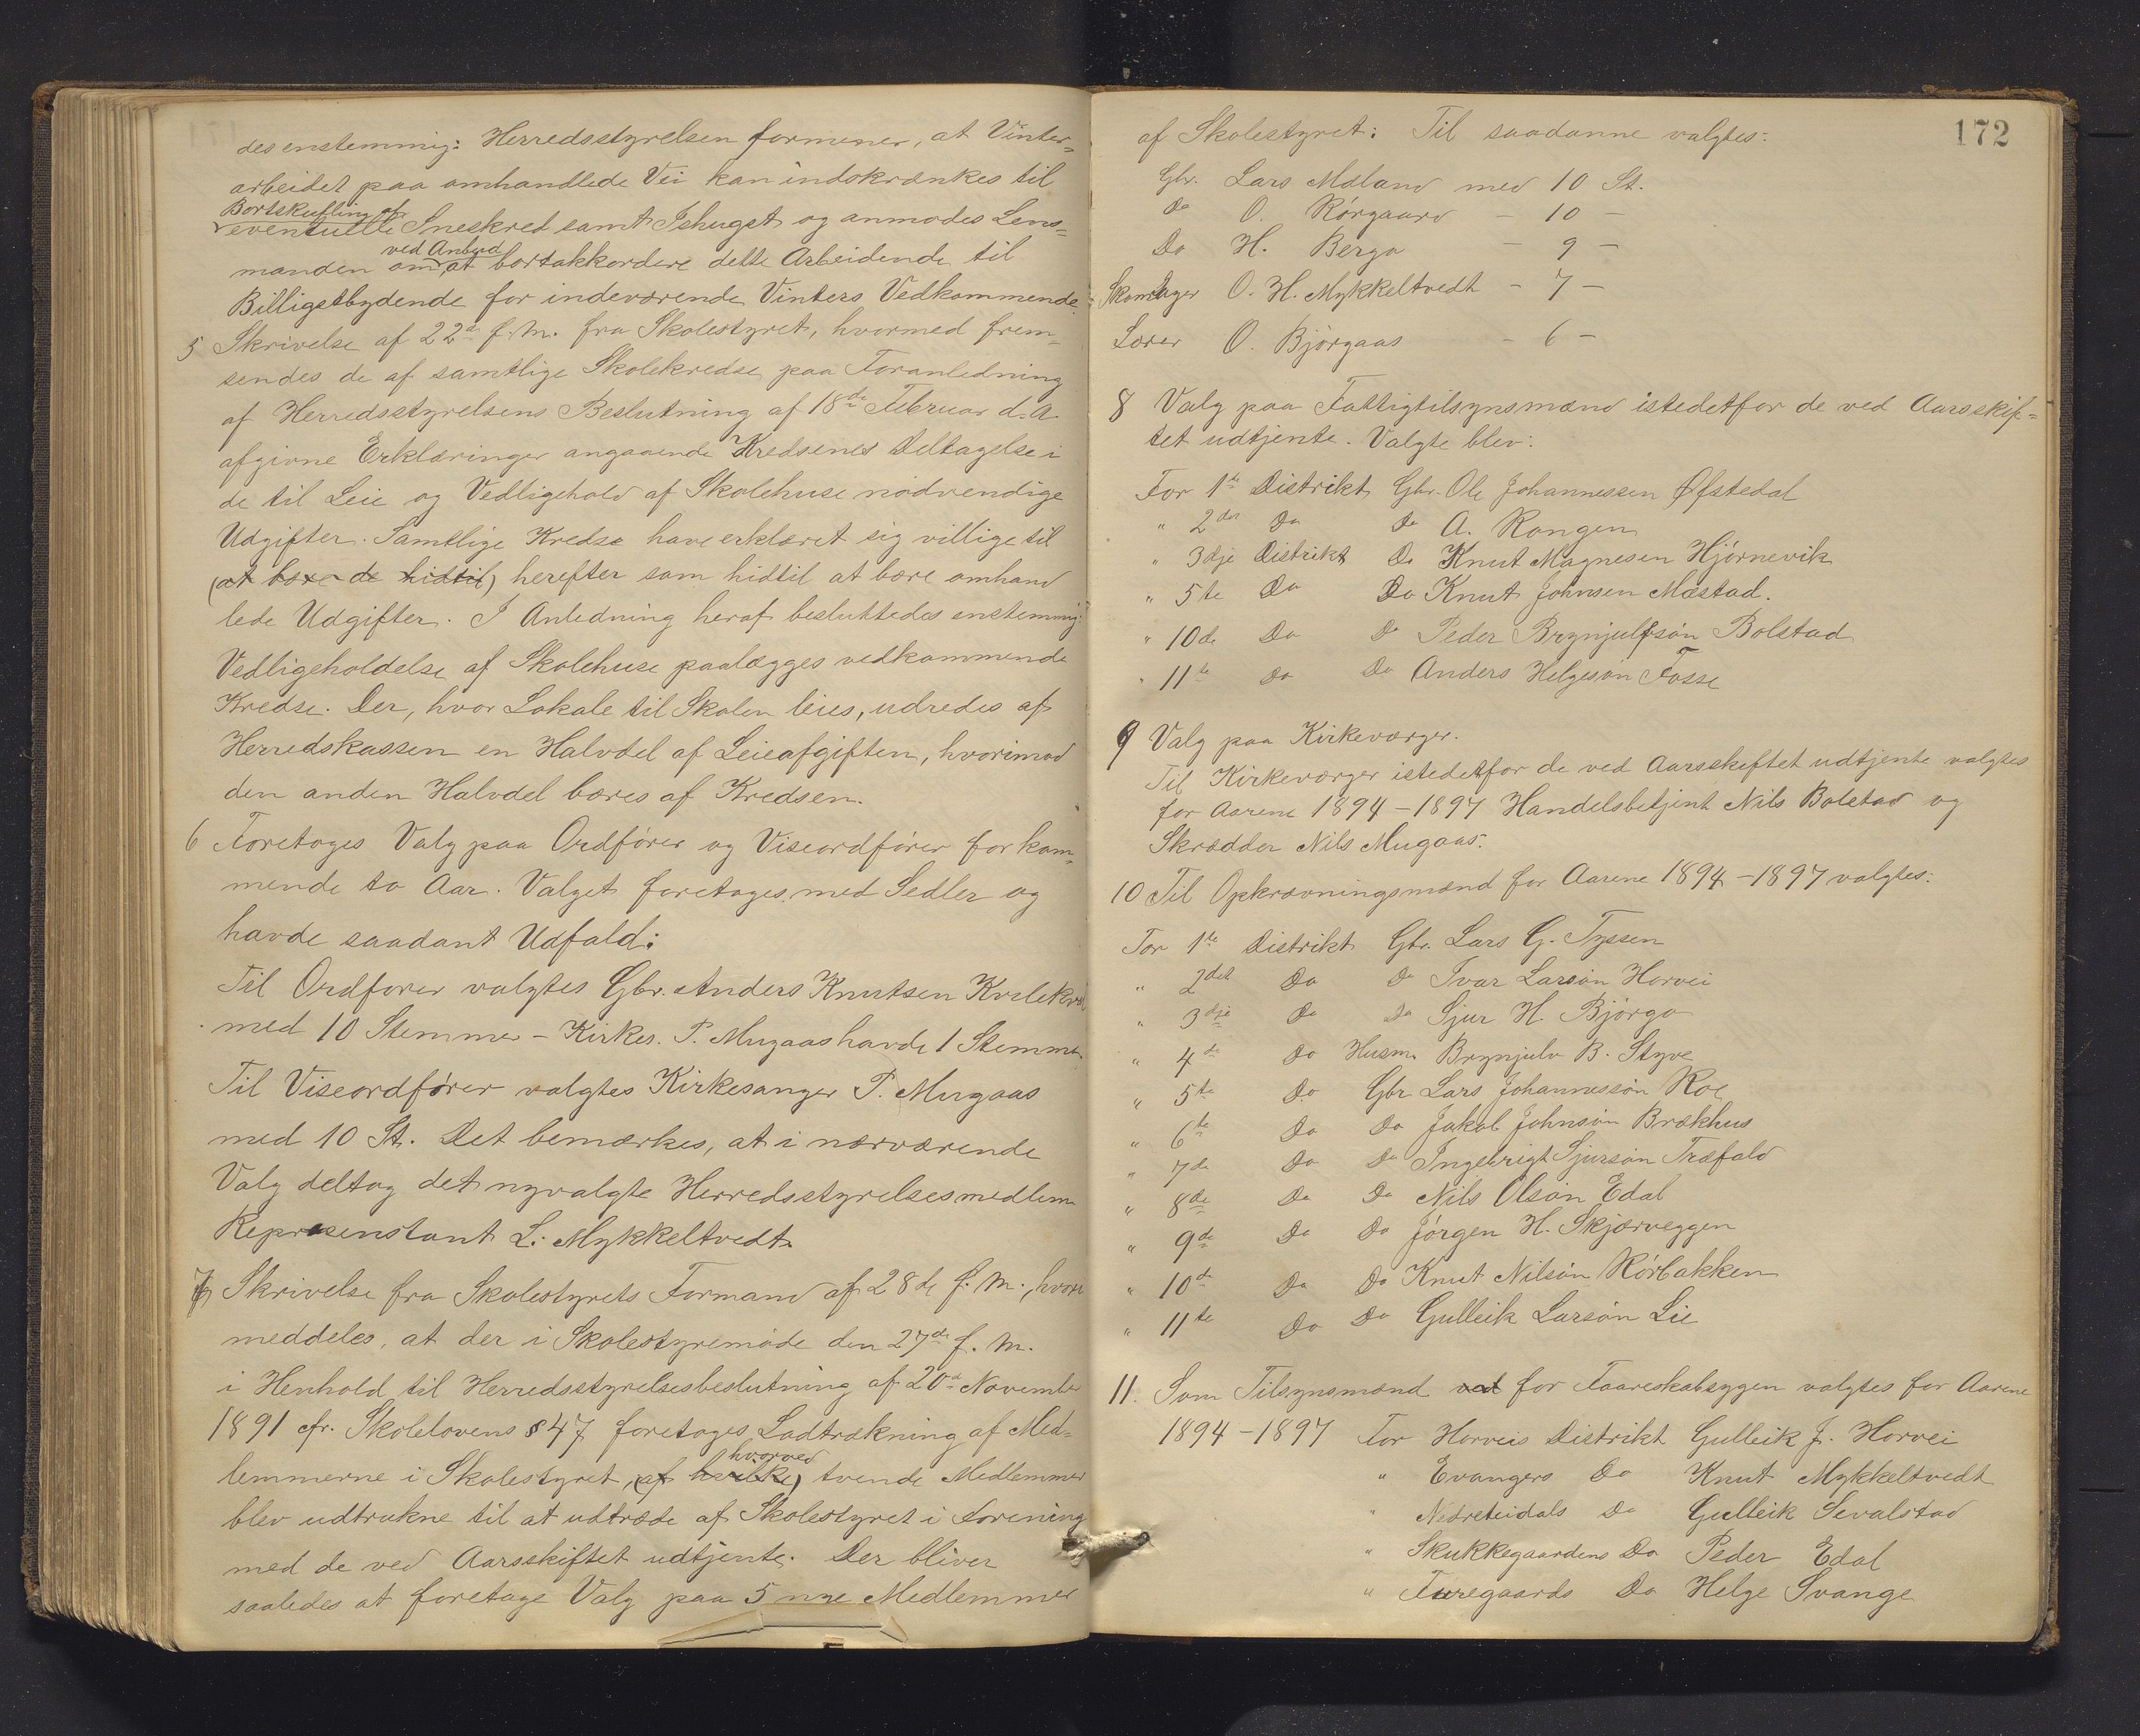 desenstemmig: Herredsstyrelsen formener, at Vinter-
arbeidet paa omhandlede Vei kan indskrænkes til
Bortskufling af
eventuelle Sneskred samt Ishugst og anmodes Lens-
ved Anbud
manden om at bortakkordere dette Arbeidende til
Billigstbydende for indeværende Vinters Vedkommende.
5 Skrivelse af 22de f. M. fra Skolestyret, hvormed frem-
sendes de af samtlige Skolekredse paa Foranledning
af Herredsstyrelsens Beslutning af 18de Februar d. A.
afgivne Erklæringer angaaende Kredsenes Deltagelse i
de til Leie og Vedligehold af Skolehuse nødvendige
Udgifter. Samtlige Kredse have erklæret sig villige til
(at bære de hidtil) herefter som hidtil at bære omhand
lede Udgifter. I Anledning heraf besluttedes enstemmig:
Vedligeholdelse af Skolehuse paalægges vedkommende
Kredse. Der, hvor Lokale til Skolen leies, udredes af
Herredskassen en Halvdel af Leieafgiften, hvorimod
den anden Halvdel bæres af Kredsen.
6 Foretoges Valg paa Ordfører og Viseordfører for kom-
mende to Aar. Valget foretoges med Sedler og
havde saadant Udfald:
Til Ordfører valgtes Gbr. Anders Knutsen
med 10 Stemmer - Kirkes. P. Mugaas havde 1 Stemme
Til Viseordfører valgtes Kirkesanger P. Mugaas
med 10 St. Det bemærkes, at i nærværende
Valg deltog det nyvalgte Herredsstyrelsesmedlem
Repræsentant L. Mykkeltvedt.
7 Skrivelse fra Skolestyrets Formand af 28de f. M., hvori
meddeles, at der i Skolestyremøde den 27de f. M.
i Henhold til Herredsstyrelsesbeslutning af 20de November
1891 cfr. Skolelovens § 47 foretoges Lodtrækning af Med-
hvorved
lemmerne i Skolestyret (af hvilke) tvende Medlemmer
blev udtrukne til at udtræde af Skolestyret i Forening
med de ved Aarsskiftet udtjente. Der bliver
saaledes at foretage Valg paa 5 nye Medlemmer
172
af Skolestyret: Til saadanne valgtes:
Gbr. Lars Mæland med 10 St.
Do O. Rørgaard - 10 -
Do H. Berge - 9 -
Skomager O. H. Mykkeltvedt - 7 -
Lærer O. Bjørgaas - 6 -
8 Valg paa Fattigtilsynsmænd istedetfor de ved Aarsskif-
tet udtjente. Valgte blev:
For 1ste Distrikt Gbr. Ole Johannessen Øfstedal
" 2det Do Do A. Rongen
" 3dje Distrikt Do Knut Magnesen Hjørnevik
" 5te Do Do Knut Johnsen Mæstad.
" 10de Do Do Peder Brynjulfsøn Bolstad
" 11te Do Do Anders Helgesøn Fosse
9 Valg paa Kirkeværger.
Til Kirkeværger istedetfor de ved Aarsskiftet udtjente valgtes
for Aarene 1894 - 1897 Handelsbetjent Nils Bolstad og
Skrædder Nils Mugaas.
10 Til Opkrævningsmænd for Aarene 1894 - 1897 valgtes:
For 1ste Distrikt Gbr. Lars G. Tyssen
" 2det Do Do Ivar Larsøn Horvei
" 3dje Do Do Sjur H. Bjørgo
" 4de Do Husm. Brynjulv B. Styve
" 5te Do Gbr Lars Johannessøn Roe
" 6te Do Do Jakob Johnsøn Brækhus
" 7de Do Do Ingebrigt Sjursøn Træfald
" 8de Do Do Nils Olsøn Edal
" 9de Do Do Jørgen H. Skjærveggen
" 10de Do Do Knut Nilsøn Rørbakken
" 11te Do Do Gulleik Larsøn Lie
11. Som Tilsynsmænd ved for Faareskabsygen valgtes for Aarene
1894 - 1897 For Horveis Distrikt Gulleik J. Horvei
" Evangers Do Knut Mykkeltvedt
" Nedreteidals Do Gulleik Sevalstad
" Skukkegaardens Do Peder Edal
" Furegaards Do Helge Svange